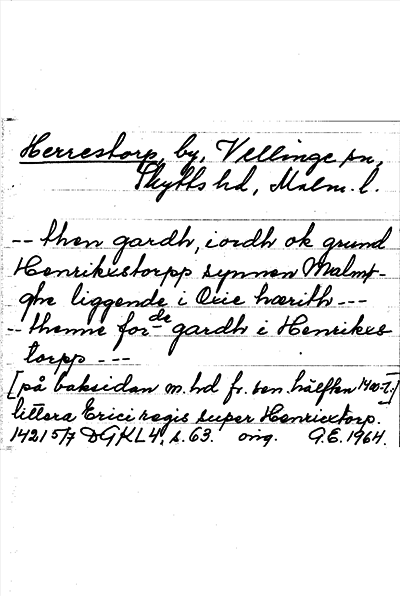 Herrestorp, by, Vellinge sn,
Skytts hd, Malm. l.
-- then gardh, iordh ok grund
Henrikxstorpp synnen Malmø-
ghe liggende i Oxie hærith ---
-- thenne forde gardh i Henrikxs
torpp ---
[på baksidan m. hd fr. sen. hälften 1400-t.:]
littera Erici regis super Henricxtorp.
1421 5/7 DGKL 4, s. 63. orig. G.E. 1964.